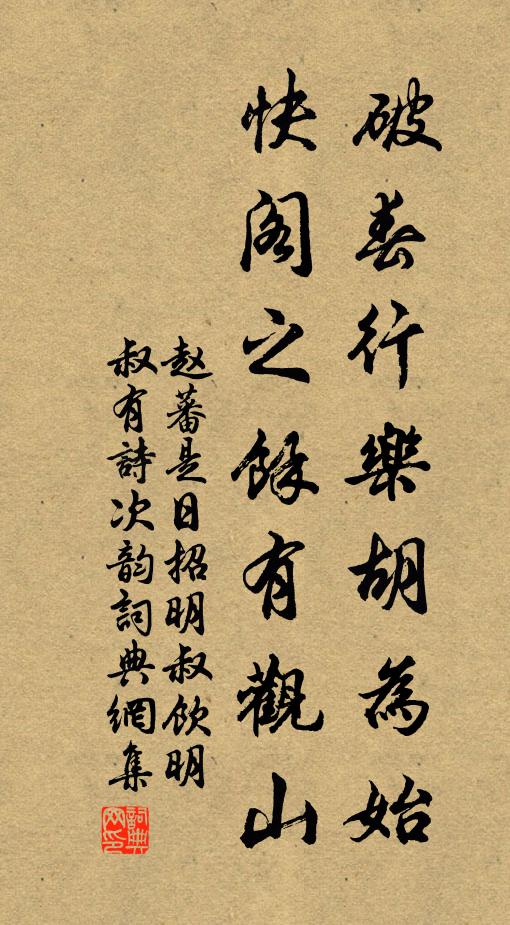 破春行樂胡為始
快阁之餘有觀山
赵蕃是日招明叔飲明
叔有詩次韵詞典網集
詞典网印